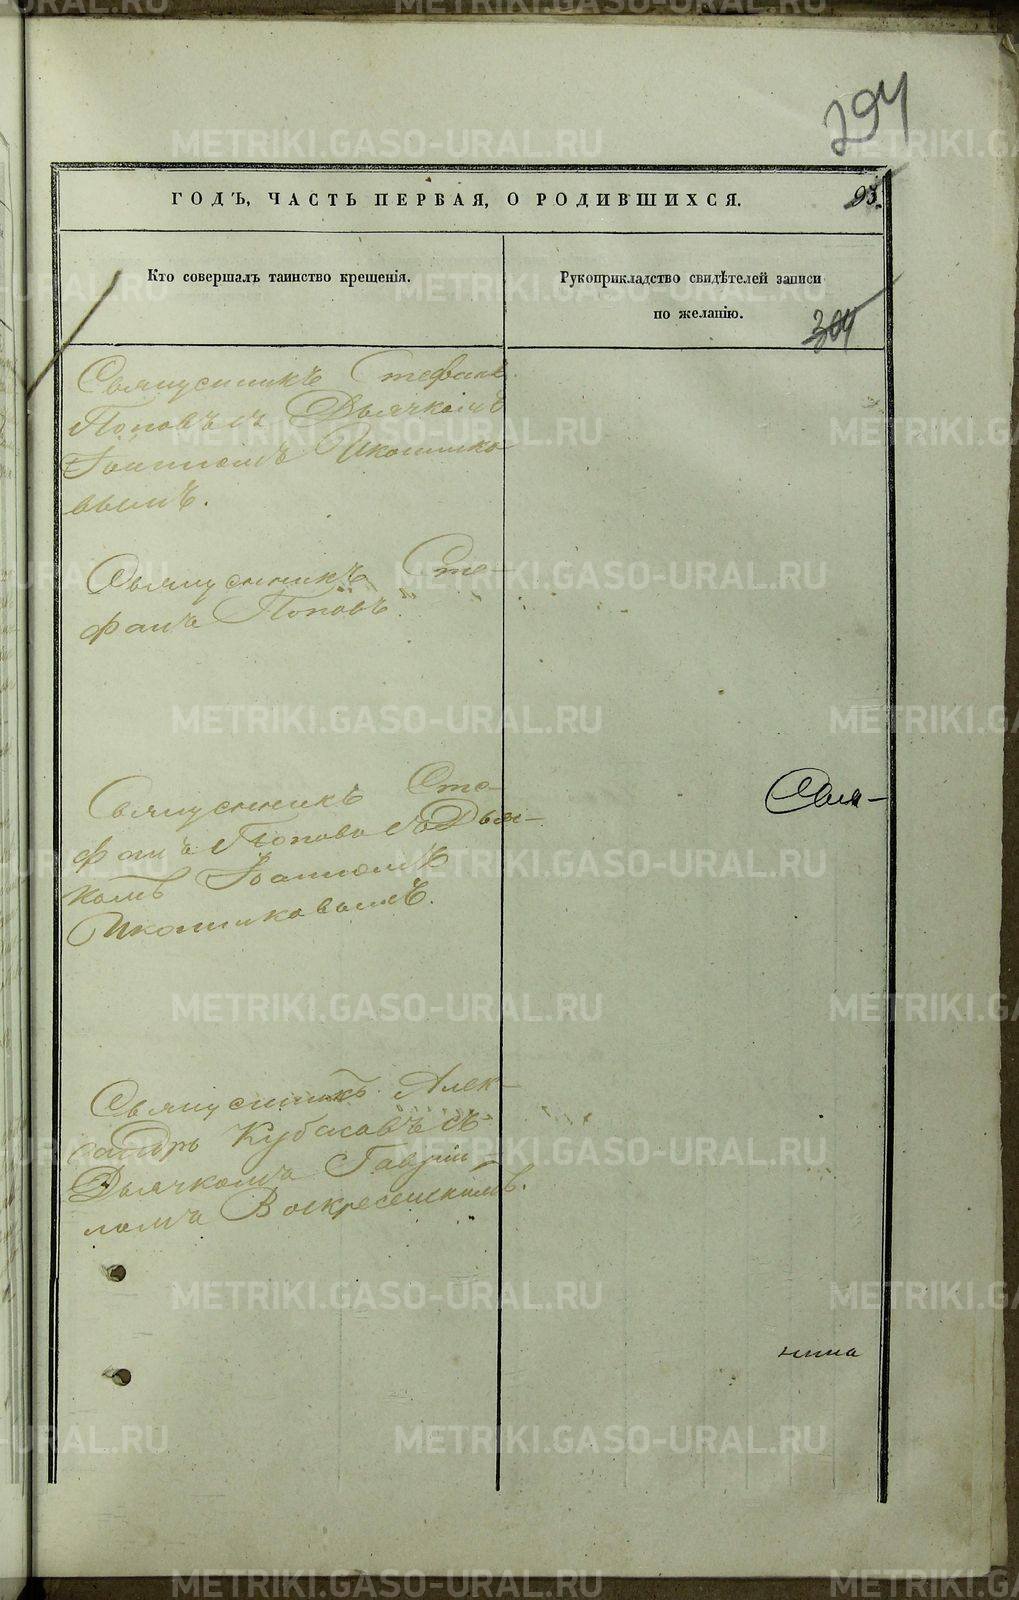 294
ГОДЪ, ЧАСТЬ ПЕРВАЯ, О РОДИВШИХСЯ.
93.
Кто совершалъ таинство крещенія.
Рукоприкладство свидѣтелей записи
по желанію.
304
Священникъ Стефанъ
Поповъ съ Дьячкомъ
Іоанномъ Иконнико
вымъ.
Священникъ Сте-
фанъ Поповъ.
Священникъ Сте-
фанъ Поповъ съ Дьяч-
комъ Іоанномъ
Иконниковымъ.
Свя-
Священникъ Алек-
сандръ Кубасовъ съ
Дьячкомъ Гаврiи-
ломъ Воскресенскимъ.
METRIKI.GASO-URAL.RU